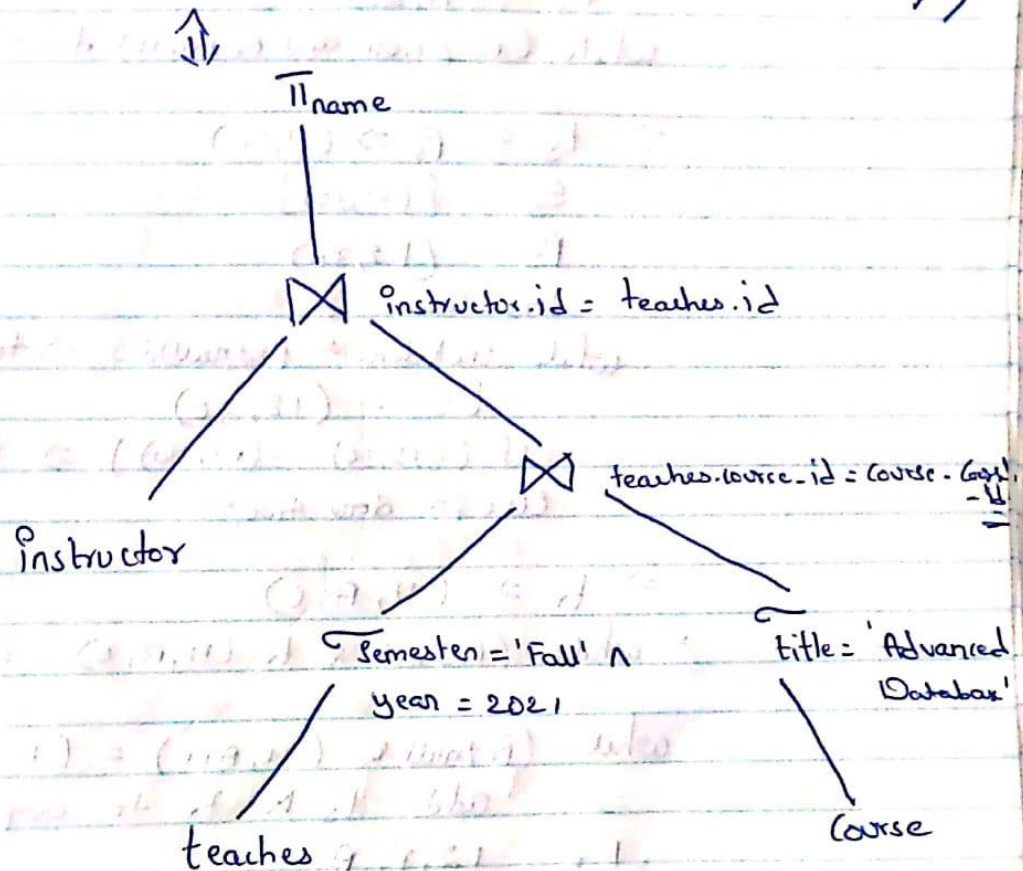 Π name
⋈ instructor.id = teaches.id
⋈ teaches.course_id = course.
_id
instructor
σ Semester = 'Fall' ∧
year = 2021
σ title = 'Advanced
Databas'
teaches
Course